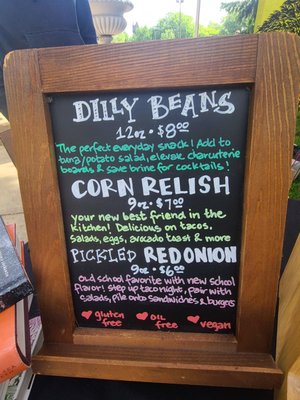 DILLY BEANS
12oz • $8.00
The perfect everyday snack! Add to
tuna/potato salad, elevate charcuterie
boards & save brine for cocktails!
CORN RELISH
9oz • $7.00
your new best friend in the
kitchen! Delicious on tacos,
salads, eggs, avocado toast & more
PICKLED RED ONION
9oz • $6.00
Old school favorite with new school
flavor! Step up taco night, pair with
salads, pile onto sandwiches & burgers
gluten free oil free vegan